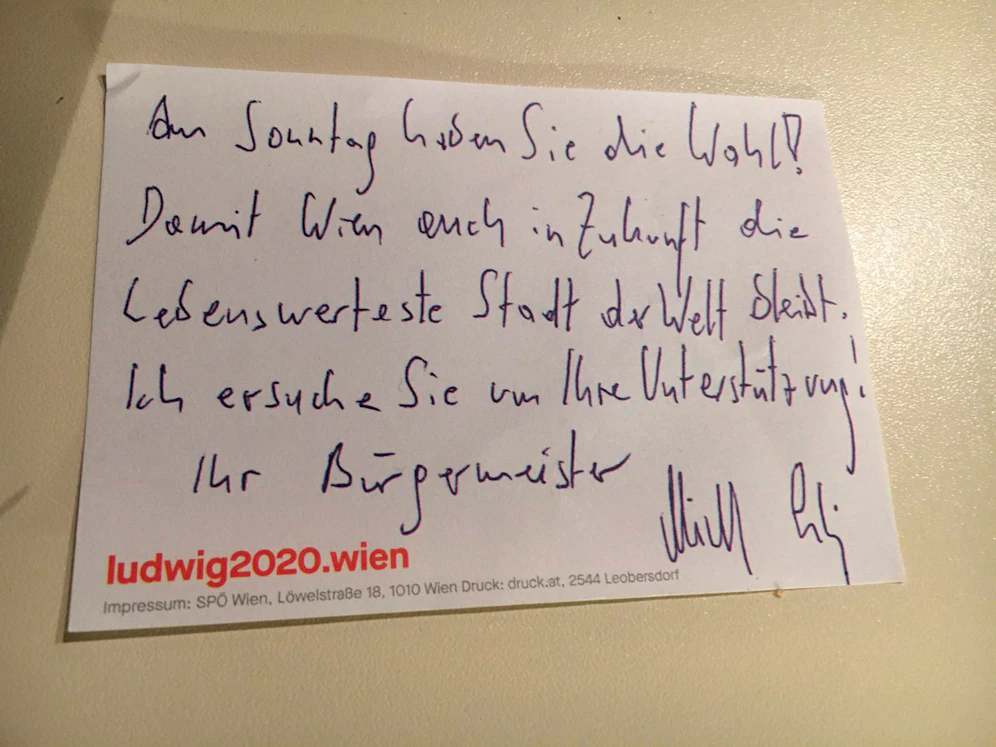 Am Sonntag haben Sie die Wahl!
Damit Wien auch in Zukunft die
Lebenswerteste Stadt der Welt bleibt.
Ich ersuche Sie um Ihre Unterstützung!
Ihr Bürgermeister
ludwig2020.wien
Impressum: SPÖ Wien, Löwelstraße 18, 1010 Wien Druck: druck.at, 2544 Leobersdorf